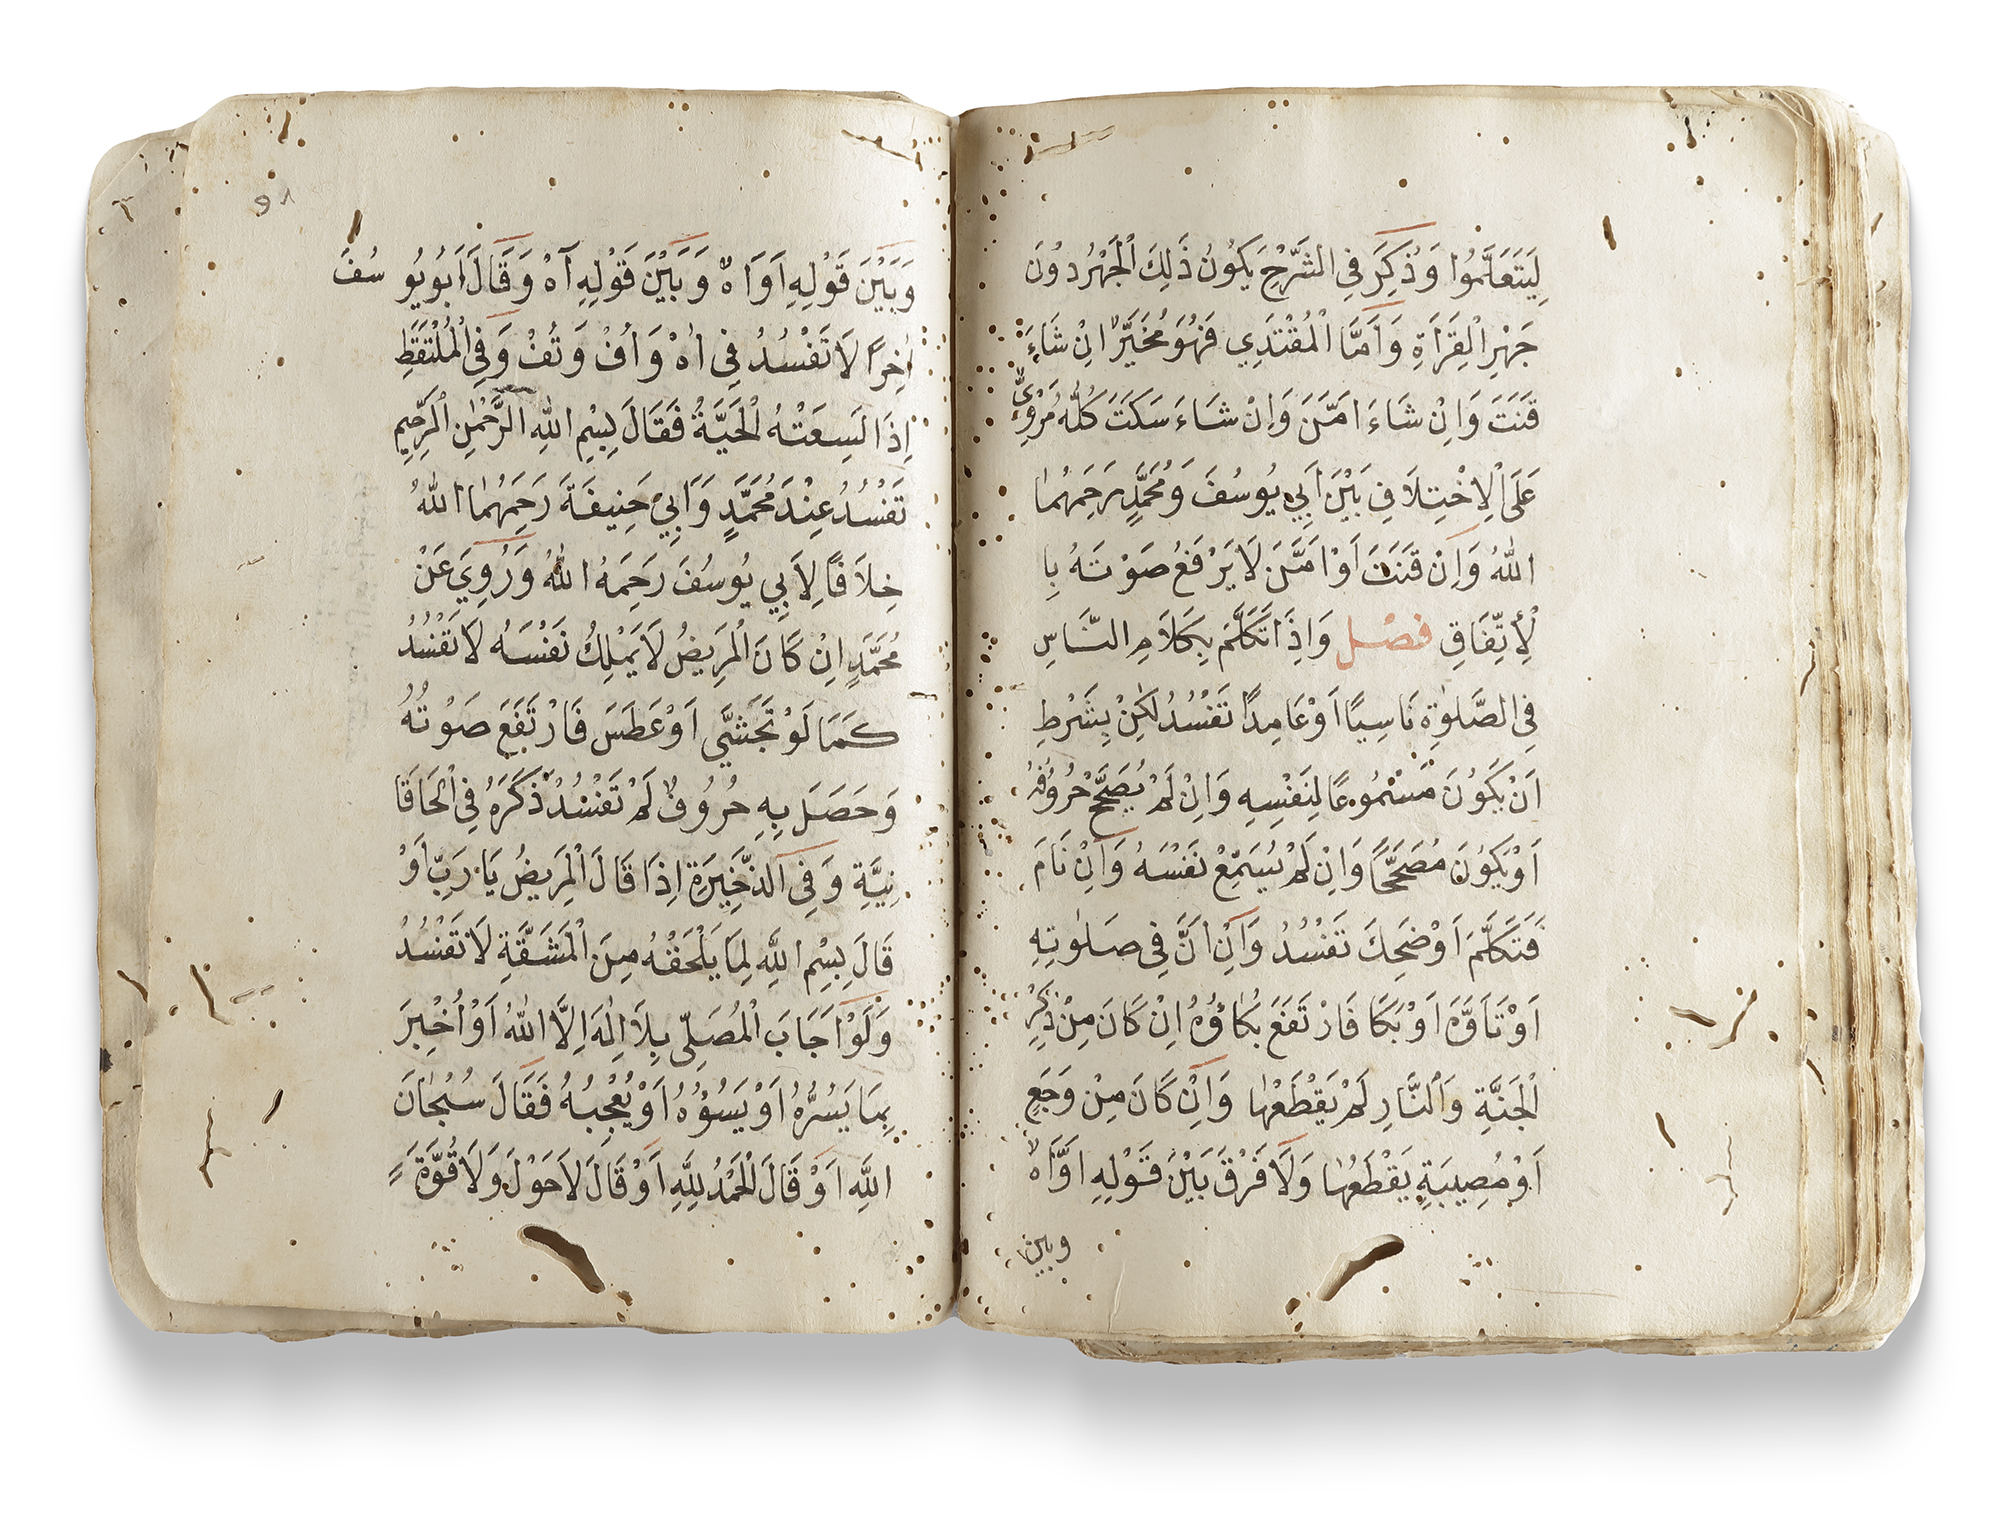 لِيَتَعَلَّمُوا وَذُكِرَ فِي الشَّرْحِ يَكُونُ ذَلِكَ الْجَهْرُ دُونَ
جَهْرِ الْقِرَأَةِ وَاَمَّا الْمُقْتَدِي فَهُوَ مُخَيَّرٌ اِنْ شَاءَ
قَنَتَ وَاِنْ شَاءَ اَمَّنَ وَاِنْ شَاءَ سَكَتَ كُلُّهُ مَرْوِيٌّ
عَلَى الْاِخْتِلَافِ بَيْنَ اَبِي يُوسُفَ وَمُحَمَّدٍ رَحِمَهُمَا
اللهُ وَاِنْ قَنَتَ اَوْ اَمَّنَ لَا يَرْفَعُ صَوْتَهُ بِا
لْاِتِّفَاقِ فصل وَاِذَا تَكَلَّمَ بِكَلَامِ النَّاسِ
فِي الصَّلٰوةِ نَاسِيًا اَوْ عَامِدًا تَفْسُدُ لٰكِنْ بِشَرْطِ
اَنْ يَكُونَ مَسْمُوعًا لِنَفْسِهِ وَاِنْ لَمْ يُصَحَّحْ حُرُوفُهُ
اَوْ يَكُونَ مُصَحَّحًا وَاِنْ لَمْ يُسْمِعْ نَفْسَهُ وَاِنْ نَامَ
فَتَكَلَّمَ اَوْ ضَحِكَ تَفْسُدُ وَاِنْ اَنَّ فِي صَلٰوتِهِ
اَوْ تَاَوَّهَ اَوْ بَكَا فَارْتَفَعَ بُكَاؤُهُ اِنْ كَانَ مِنْ ذِكْرِ
الْجَنَّةِ وَالنَّارِ لَمْ يَقْطَعْهَا وَاِنْ كَانَ مِنْ وَجَعٍ
اَوْ مُصِيبَةٍ يَقْطَعُهَا وَلَا فَرْقَ بَيْنَ قَوْلِهِ اَوَّاهْ
وبين
٩٨
وَبَيْنَ قَوْلِهِ اَوَاهْ وَبَيْنَ قَوْلِهِ آهْ وَقَالَ اَبُو يُو سُفَ
اٰخِرًا لَا تَفْسُدُ فِي اٰهْ وَاُفْ وَتُفْ وَفِي الْمُلْتَقَطِ
اِذَا لَسِعَتْهُ الْحَيَّةُ فَقَالَ بِسْمِ اللهِ الرَّحْمٰنِ الرَّحِيمِ
تَفْسُدُ عِنْدَ مُحَمَّدٍ وَاَبِي حَنِيفَةَ رَحِمَهُمَا اللهُ
خِلَافًا لِاَبِي يُوسُفَ رَحِمَهُ اللهُ وَرُوِيَ عَنْ
مُحَمَّدٍ اِنْ كَانَ الْمَرِيضُ لَا يَمْلِكُ نَفْسَهُ لَا تَفْسُدُ
كَمَا لَوْ تَجَشَّى اَوْ عَطَسَ فَارْتَفَعَ صَوْتُهُ
وَحَصَلَ بِهِ حُرُوفٌ لَمْ تَفْسُدْ ذَكَرَهُ فِي الْخَاقَا
نِيَّةِ وَفِي الذَّخِيرَةِ اِذَا قَالَ الْمَرِيضُ يَا رَبِّ اَوْ
قَالَ بِسْمِ اللَّهِ لِمَا يَلْحَقُهُ مِنَ الْمَشَقَّةِ لَا تَفْسُدُ
وَلَوْ اَجَابَ الْمُصَلِّي بِلَا اِلٰهَ اِلَّا اللهُ اَوْ اُخْبِرَ
بِمَا يَسُرُّهُ اَوْ يَسُوْءُهُ اَوْ يُعْجِبُهُ فَقَالَ سُبْحَانَ
اللَّهِ اَوْ قَالَ الْحَمْدُ لِلَّهِ اَوْ قَالَ لَا حَوْلَ وَلَا قُوَّةَ